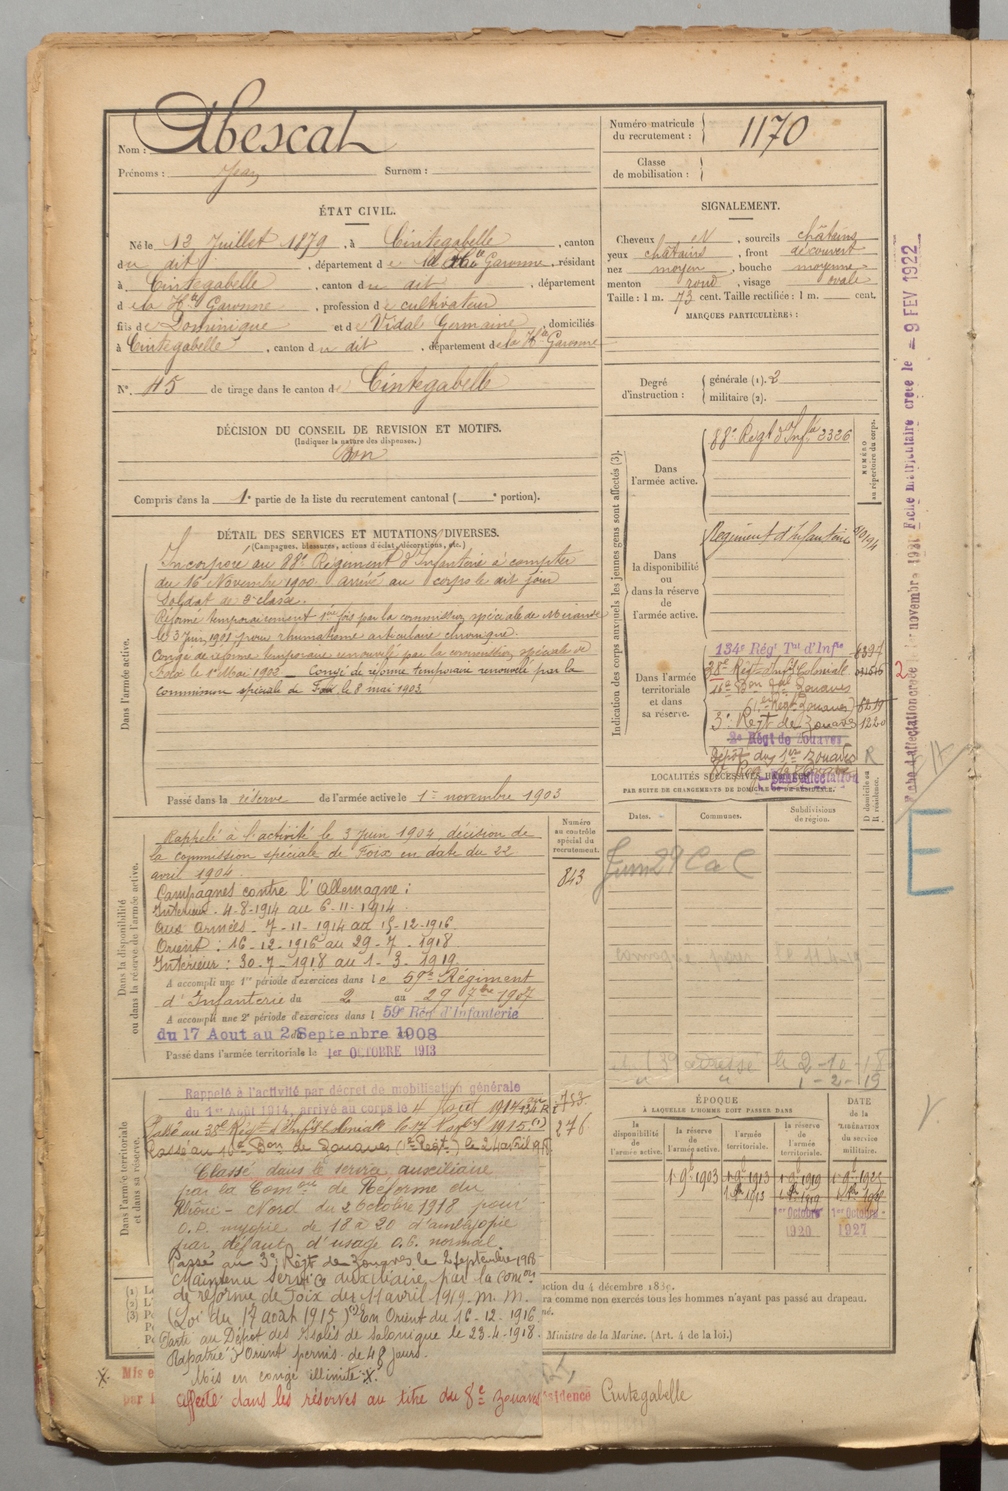 Nom : Abescat
Prénoms : Jean Surnom :
Numéro matricule du recrutement : 1170
Classe de mobilisation :
ÉTAT CIVIL.
Né le 13 Juillet 1879, à Cintegabelle, canton
du dit, département de la Hte Garonne, résidant
à Cintegabelle, canton du dit, département
de la Hte Garonne, profession de cultivateur
fils de Dominique et de Vidal Germaine, domiciliés
à Cintegabelle, canton du dit, département de la Hte Garonne
N°. 45 de tirage dans le canton de Cintegabelle
SIGNALEMENT.
Cheveux , sourcils châtains
yeux châtains, front découvert
nez moyen, bouche moyenne
menton rond, visage ovale
Taille : 1 m. 73 cent. Taille rectifiée : 1 m. cent.
MARQUES PARTICULIÈRES :
Degré d'instruction : générale (1). 2
militaire (2).
DÉCISION DU CONSEIL DE REVISION ET MOTIFS.
(Indiquer la nature des dispenses.)
Bon
Compris dans la 1e partie de la liste du recrutement cantonal ( e portion).
DÉTAIL DES SERVICES ET MUTATIONS DIVERSES.
(Campagnes, blessures, actions d'éclat, décorations, etc.)
Dans l'armée active.
Incorporé au 88e Régiment d'Infanterie à compter
du 16 Novembre 1900 arrivé au corps le dit jour
Soldat de 2e classe.
Réformé temporairement 1ère fois par la commission spéciale de Mirande
le 3 Juin 1901 pour rhumatisme articulaire chronique.
Congé de réforme temporaire renouvelé par la commission spéciale de
Foix le Mai 1902 _ Congé de réforme temporaire renouvelé par la
commission spéciale de Foix le 8 mai 1903
Passé dans la réserve de l'armée active le 1er novembre 1903
Indication des corps auxquels les jeunes gens sont affectés (3).
Dans l'armée active.
88e Régt d'Infie 3326
NUMÉRO au répertoire du corps.
Dans la disponibilité ou dans la réserve de l'armée active.
Régiment d'Infanterie
Dans l'armée territoriale et dans sa réserve.
134e Régt Tal d'Infie
38e Régt d'Infie Coloniale
16e Bon de Zouaves
(1er Régt Zouaves)
3e Régt de Zouaves 1220
2e Régt de Zouaves
Dépôt du 1er Zouaves R
LOCALITÉS SUCCESSIVES
PAR SUITE DE CHANGEMENTS DE DOMICILE OU DE RÉSIDENCE.
Dates. Communes. Subdivisions de région.
D domicile ou R résidence.
Fiche matriculaire créée le - 9 FEV 1922
E
Dans la disponibilité ou dans la réserve de l'armée active.
Rappelé à l'activité le 3 Juin 1904, décision de
la commission spéciale de Foix en date du 22
avril 1904.
Campagnes contre l'Allemagne :
Intérieur. 4-8-1914 au 6-11-1914
aux armées. 7-11-1914 au 15-12-1916
Orient : 16-12-1916 au 29-7-1918
Intérieur : 30-7-1918 au 1-3-1919
A accompli une 1re période d'exercices dans le 59e Régiment
d'Infanterie du 2 au 29 7bre 1907
A accompli une 2e période d'exercices dans l 59e Rég d'Infanterie
du 17 Aout au 2 Septembre 1908
Passé dans l'armée territoriale le 1er OCTOBRE 1913
Numéro au contrôle spécial du recrutement.
843
Dans l'armée territoriale et dans sa réserve.
Rappelé à l'activité par décret de mobilisation générale
du 1er Août 1914, arrivé au corps le 4 Aout 1914
Passé au 38e Régt d'Infie Coloniale le 17 1915
Passé au 16e Bon de Zouaves (1er Régt) le 24 avril 1918
276
Classé dans le service auxiliaire
par la Comon de Réforme du
Rhône-Nord du 2 octobre 1918 pour
O.D. myopie de 18 à 20 d'amblyopie
par défaut d'usage O.G. normal.
Passé au 3e Régt de Zouaves le 2 Septembre 1918
Maintenu service auxiliaire par la Comon
de réforme de Foix du 11 avril 1919. M.M.
(Loi du 17 août 1915) En Orient du 16-12-1916
Parti au Dépôt des Isolés de Salonique le 23-4-1918.
Rapatrié d'Orient permis. de 48 jours.
Mis en congé illimité X.
Affecté dans les réserves au titre du 8e Zouaves
ÉPOQUE
À LAQUELLE L'HOMME DOIT PASSER DANS
la disponibilité de l'armée active.
la réserve de l'armée active.
l'armée territoriale.
la réserve de l'armée territoriale.
DATE de la LIBÉRATION du service militaire.
1er Octobre 1920
1er Octobre 1927
ction du 4 décembre 1889.
ra comme non exercés tous les hommes n'ayant pas passé au drapeau.
Ministre de la Marine. (Art. 4 de la loi.)
Mis e
par l
résidence Cintegabelle